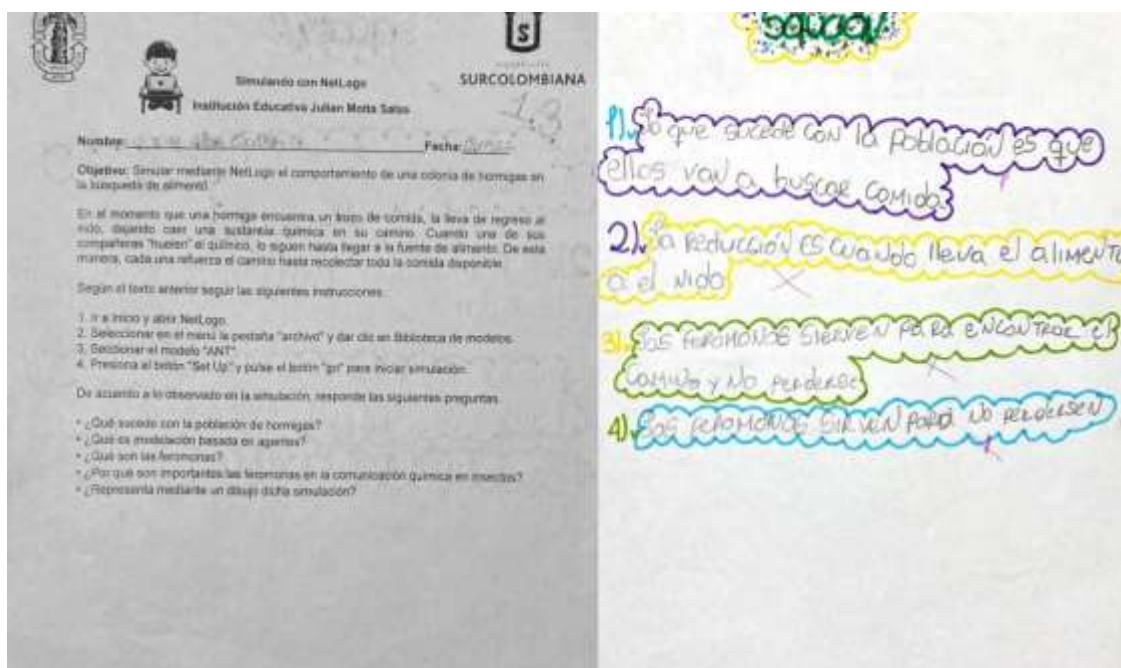 SURCOLOMBIANA
Simulando con NetLogo
Institución Educativa Julian Motta Salas
1.3
Nombre:
Fecha:
Objetivo: Simular mediante NetLogo el comportamiento de una colonia de hormigas en
la búsqueda de alimento.
En el momento que una hormiga encuentra un trozo de comida, la lleva de regreso al
nido, dejando caer una sustancia química en su camino. Cuando una de sus
compañeras "huelen" el químico, lo siguen hasta llegar a la fuente de alimento. De esta
manera, cada una refuerza el camino hasta recolectar toda la comida disponible.
Según el texto anterior seguir las siguientes instrucciones:
1. Ir a Inicio y abrir NetLogo.
2. Seleccionar en el menú la pestaña "archivo" y dar clic en Biblioteca de modelos.
3. Seccionar el modelo "ANT".
4. Presiona el botón "Set Up" y pulse el botón "go" para iniciar simulación.
De acuerdo a lo observado en la simulación, responde las siguientes preguntas.
* ¿Qué sucede con la población de hormigas?
* ¿Qué es modelación basada en agentes?
* ¿Qué son las feromonas?
* ¿Por qué son importantes las feromonas en la comunicación química en insectos?
* ¿Representa mediante un dibujo dicha simulación?
1). Lo que sucede con la población es que
ellos van a buscar comida
2). La reducción es cuando lleva el alimento
a el nido
3). Las feromonas sierven para encontrar el
camino y no perderse
4). Las feromonas sirven para no perdersen